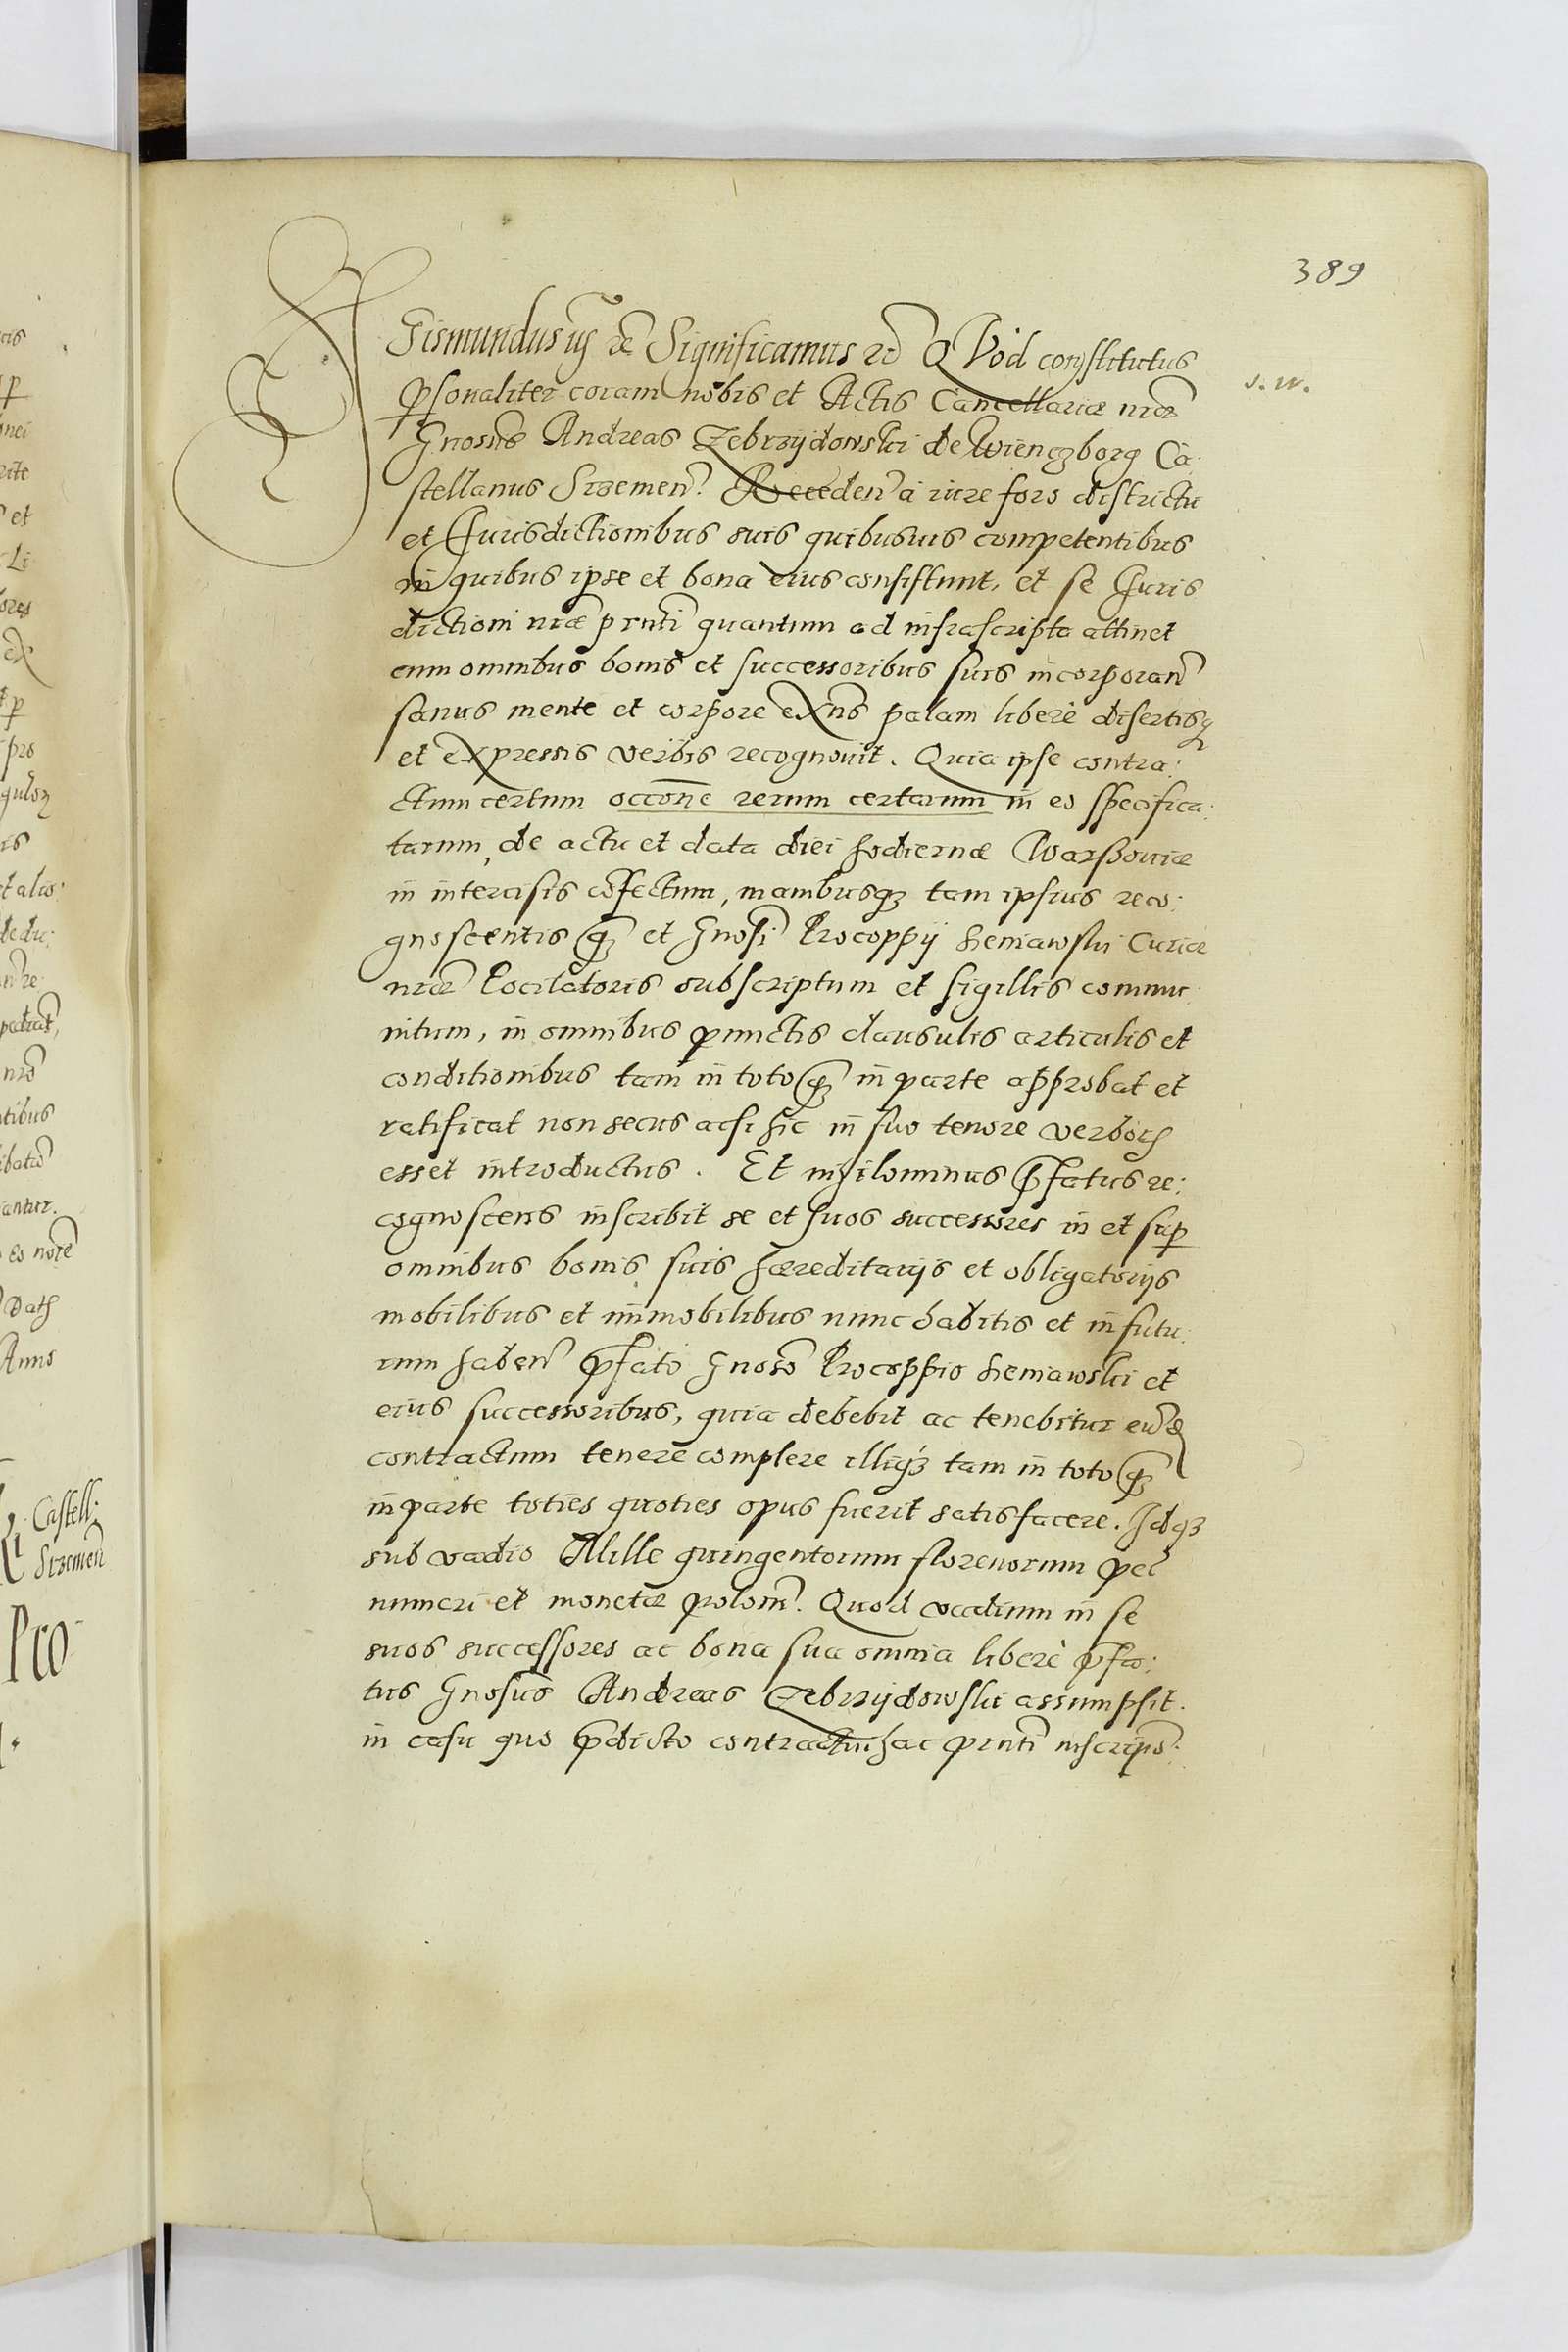 389
Sigismundus iij etc Significamus etc QVod constitutus
s. w.
personaliter coram nobis et Actis Cancellariæ nræ
Gnosus Andreas Zebrzydowski de Wienczborg Ca:
stellanus Srzemen. Receden à iure foro districtu
et Jurisdictionibus suis quibusuis competentibus
in quibus ipse et bona eius consistunt, et se Juris
dictioni nræ prnti quantum ad infrascripta attinet
cum omnibus bonis et successoribus suis incorporan
sanus mente et corpore exns palam liberè disertisq
et expressis verbis recognouit. Quia ipse contra:
ctum certum occone rerum certarum in eo specifica:
tarum, de actu et data diei hodiernæ Warssouiæ
in intercisis cofectum, manibusqz tam ipsius reco:
gnoscentis qz et Gnosi Procoppij Sieniawski Curiæ
nræ Pocilatoris subscriptum et sigillis commu
nitum, in omnibus punctis clausulis articulis et
conditionibus tam in toto qz in parte approbat et
ratificat non secus acsi hic in suo tenore verbotq
esset introductus. Et nihilominus pfatus re:
cognoscens inscribit se et suos successores in et sup
omnibus bonis suis hæreditarijs et obligatorijs
mobilibus et immobilibus nunc habitis et in futu:
rum haben pfato Gnoso Procoppio Sieniawski et
eius successoribus, quia debebit ac tenebitur eude
contractum tenere complere illiqz tam in toto qz
in parte toties quoties opus fuerit satisfacere. Idqz
sub vadio Mille quingentorum florenorum pec
numeri et monetæ polon. Quod vadium in se
suos successores ac bona sua omnia liberè pfa:
tus Gnosus Andreas Zebrzydowski assumpsit.
in casu quo pdicto contractui hac prnti inscrips:
Castell:
Srzemen
Pro